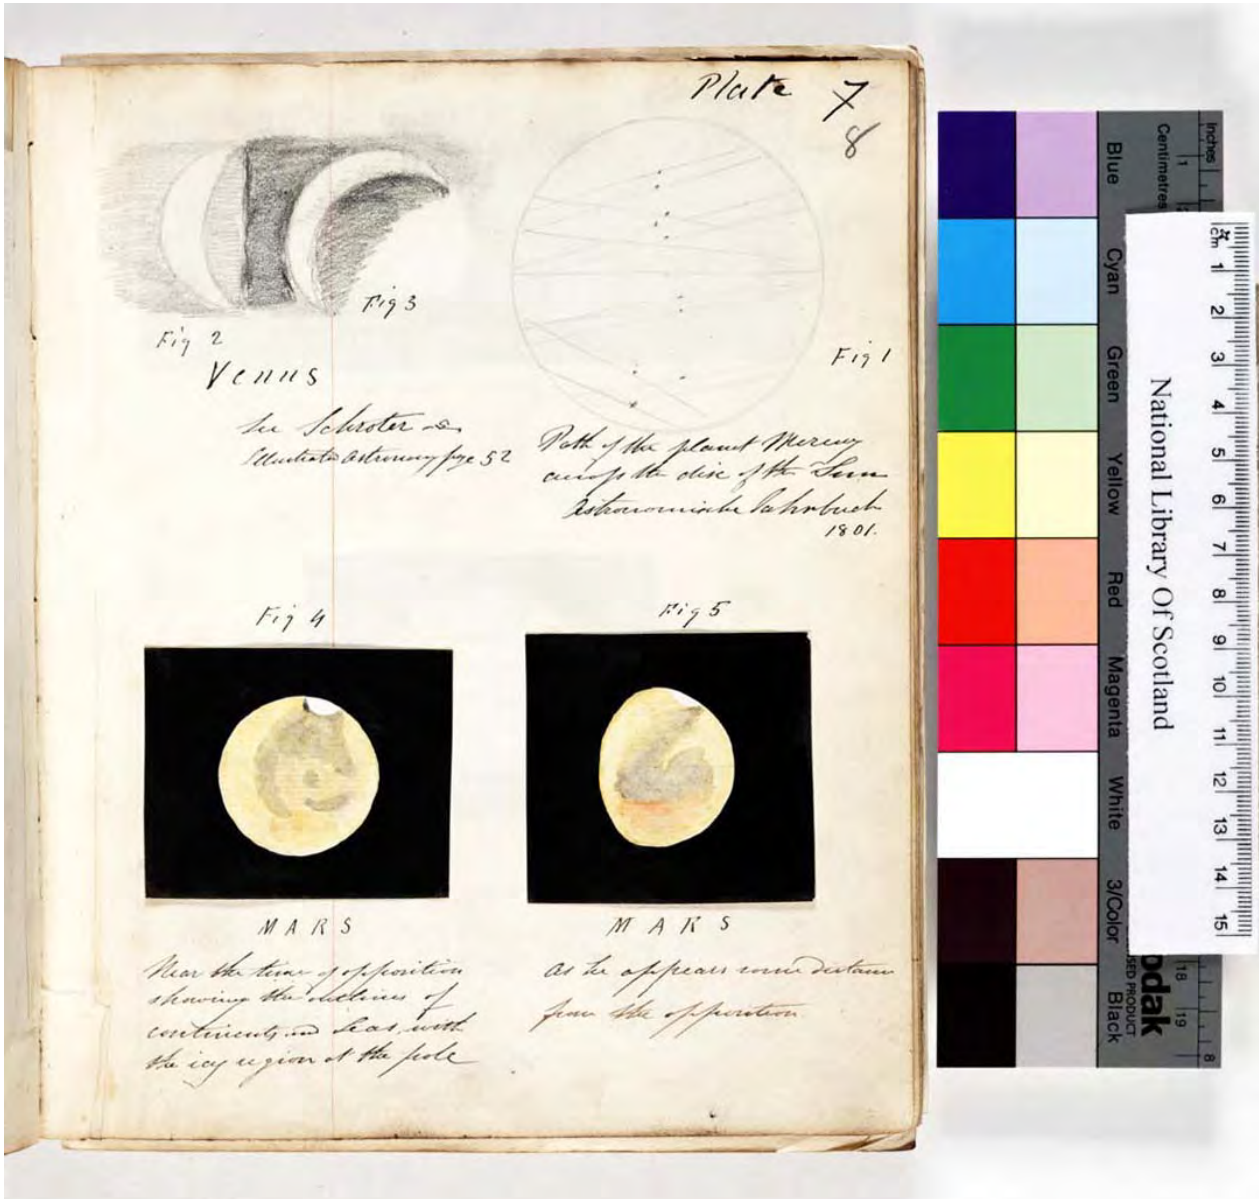 Plate 7
8
Fig 3
Fig 2
Venus
Fig 1
See Schroter
Illustrated Astronomy page 52
Path of the planet Mercury
across the disc of the Sun
Astronomische Jahrbuch
1801.
Fig 4
Fig 5
MARS
Near the time of opposition
showing the outlines of
continents and Seas, with
the icy region at the pole
MARS
As he appears some distance
from the opposition
Blue
Cyan
Green
Yellow
Red
Magenta
White
3/Color
Black
Inches
Centimetres
1
18
19
8
cm 1 2 3 4 5 6 7 8 9 10 11 12 13 14 15
National Library Of Scotland
odak
SED PRODUCT